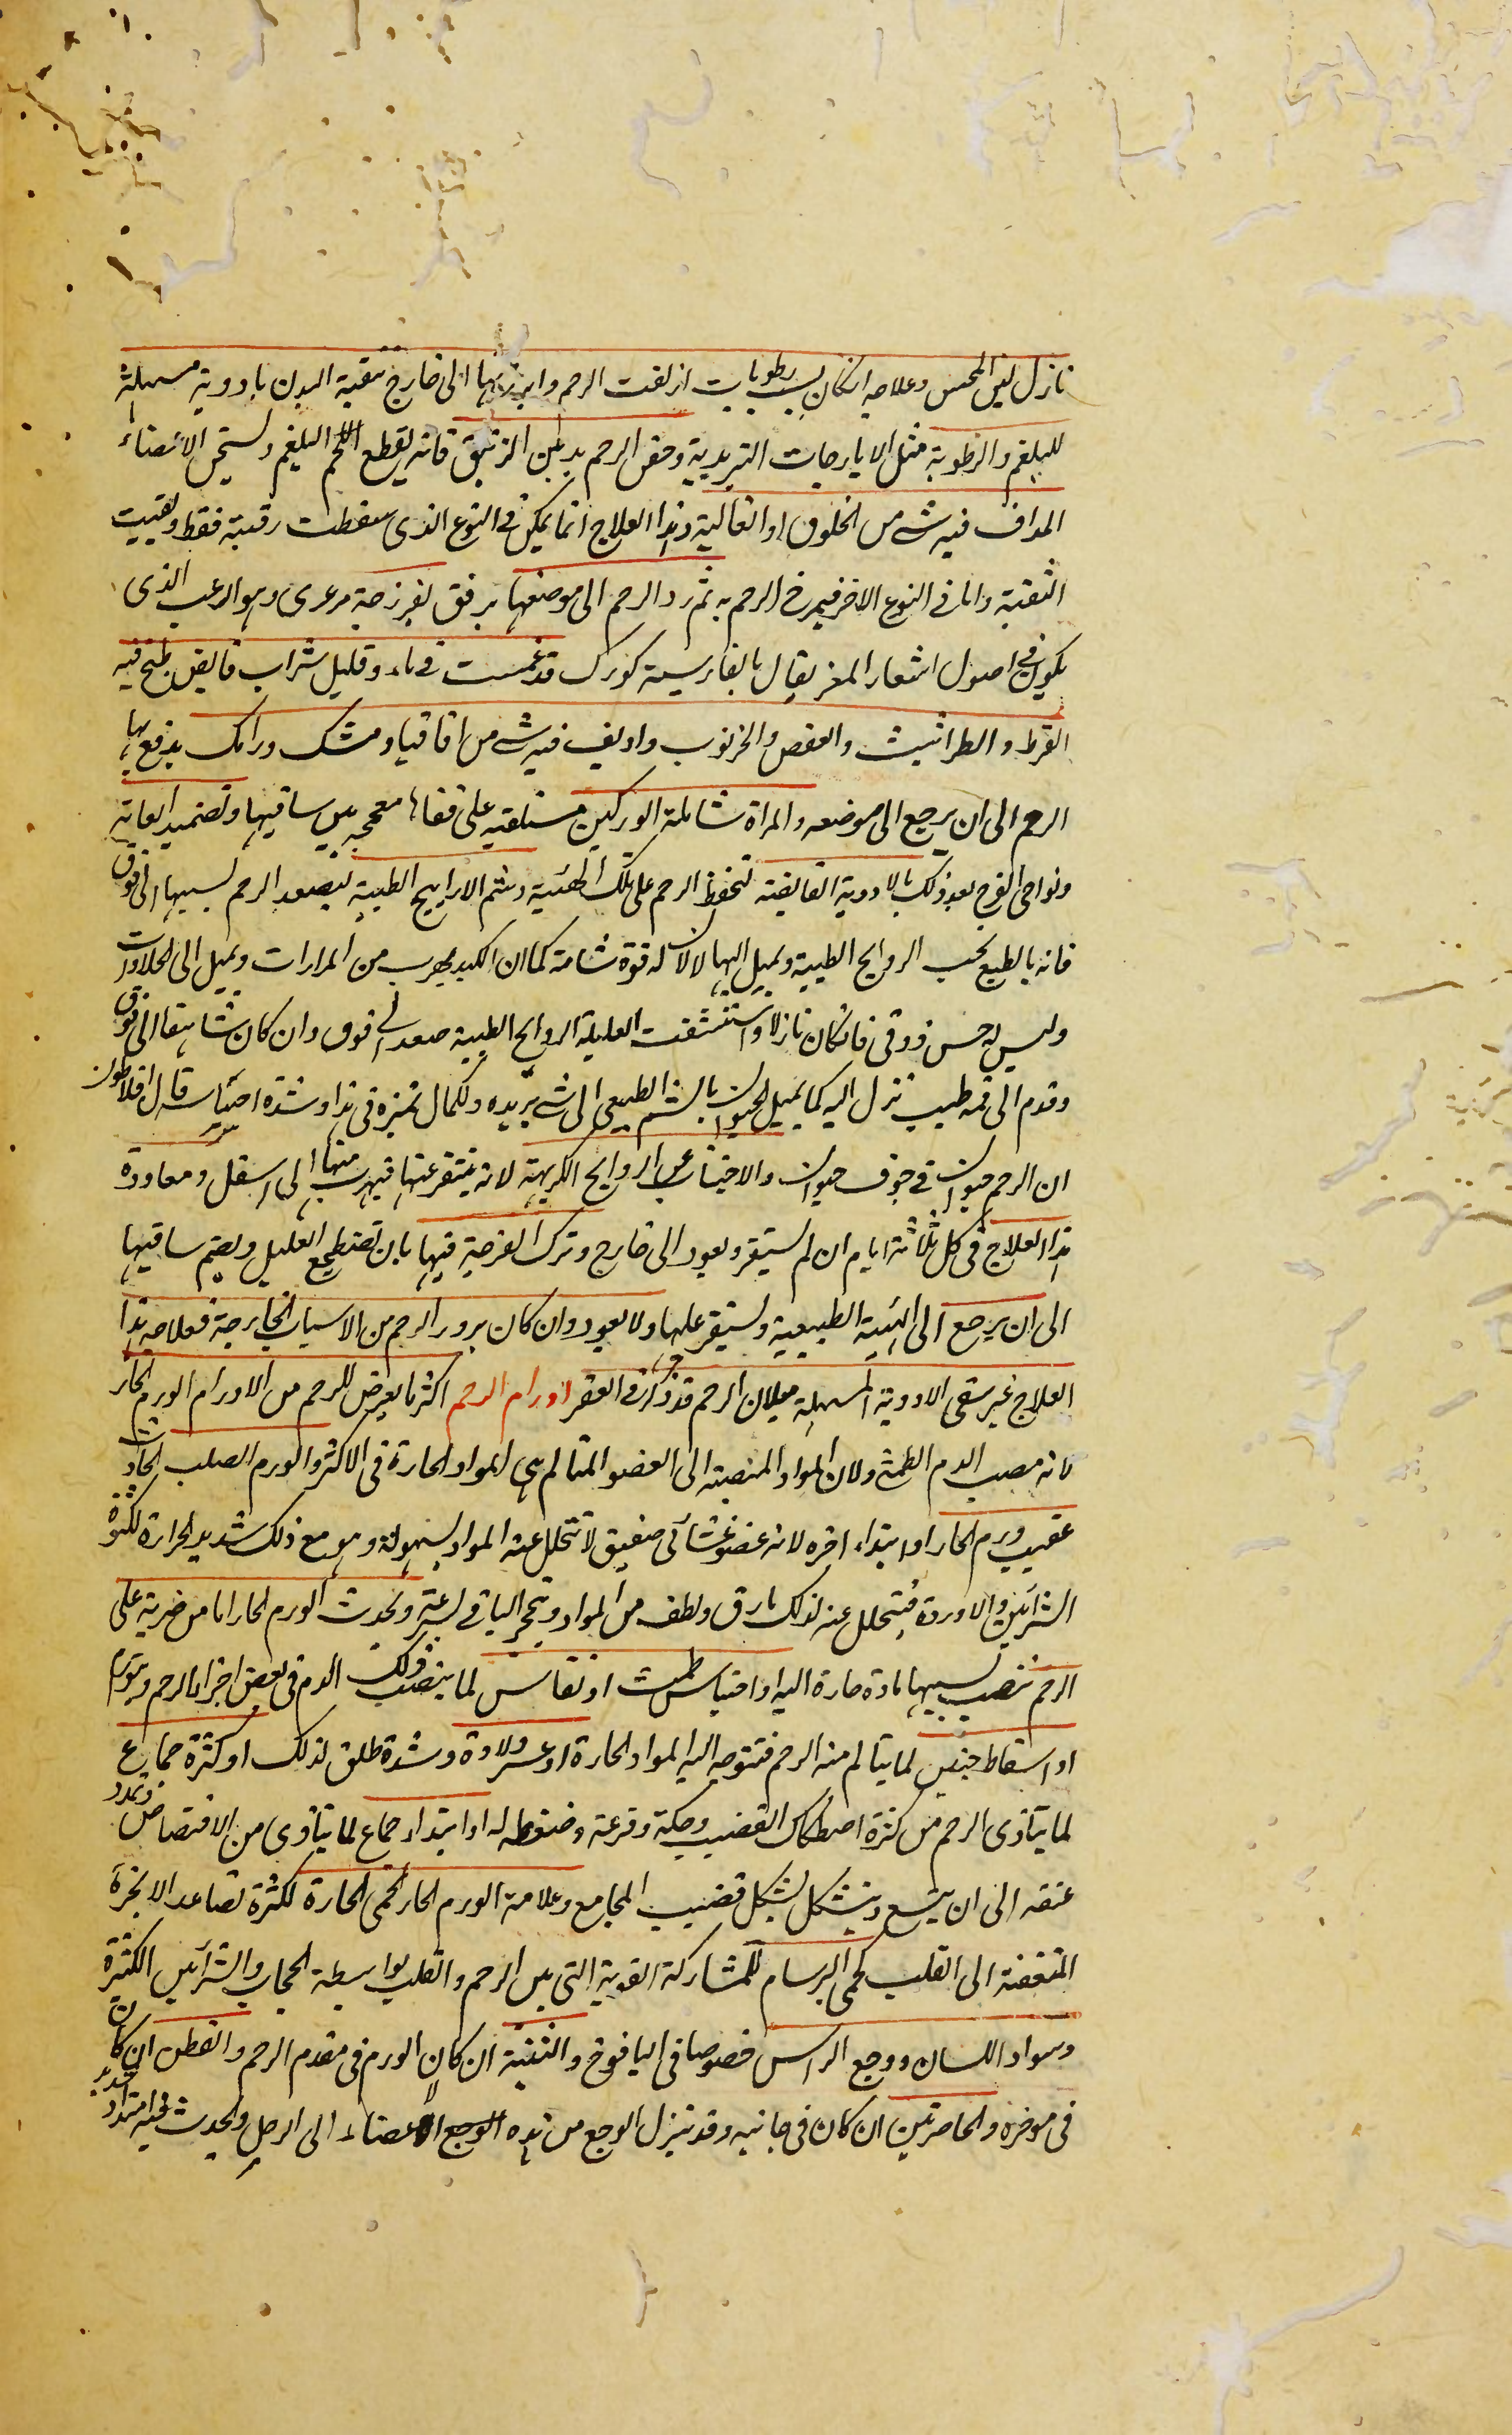 نازل لين المحس وعلاجه ان كان بسبب رطوبات ازلقت الرحم وابرزتها الى خارج تنقية البدن بادوية مسهلة
للبلغم والرطوبة مثل الايارجات التربدية وحقن الرحم بدهن الزنبق فانه يقطع البلغم ويسخن الاعضاء
المداف فيه شى من الخلوق او الغالية وهذا العلاج انما يمكن فى النوع الذى سقطت رقبته فقط وبقيت
الثقبة واما فى النوع الاخر فيمرخ الرحم به ثم رد الرحم الى موضعها برفق بفرزجة مرعزى وهو الزغب الذى
يكون فى اصول اشعار المعز يقال بالفارسية كورك قد غمست فى ماء وقليل شراب قابض طبخ فيه
القرظ والطراثيث والعفص والخرنوب واديف فيه شى من اقاقيا ومشك ورامك يدفع بها
الرحم الى ان يرجع الى موضعه والمراة شاملة الوركين مستلقية على قفاها مفحجه بين ساقيها وتضميد العانة
ونواحى الفرج بعد ذلك بالادوية القابضة لتحفظ الرحم على تلك الهيئة وشم الاراييح الطيبة ليصعد الرحم بسببها الى فوق
فانه بالطبع يحب الروايح الطيبة ويميل اليها لا لان له قوة شامة كما ان الكبد يهرب من المرارات ويميل الى الحلاوات
وليس له حس ذوقى فان كان نازلا واستنشقت العليلة الروايح الطيبة صعد الى فوق وان كان شاهقا الى فوق
وقدم الى فمه طيب نزل اليه كما يميل الحيوان بالشم الطبيعى الى شى يريده ولكمال تميزه فى هذا وشدة احتياسه قال افلاطون
ان الرحم حيوان فى جوف حيوان والاجتناب عن الروايح الكريهة لانه يتنفر عنها فيهرب منها الى اسفل ومعاودة
هذا العلاج فى كل ثلاثة ايام ان لم يستقر ويعود الى خارج وترك الفرزجة فيها بان تضطجع العليل ويضم ساقيها
الى ان يرجع الى الهيئة الطبيعية ويستقر عليها ولا يعود وان كان بروز الرحم من الاسباب الخارجة فعلاجه هذا
العلاج غير سقى الادوية المسهلة ميلان الرحم قد ذكر فى العقر اورام الرحم اكثر ما يعرض للرحم من الاورام الورم الحار
لانه مصب الدم الطمثى ولان المواد المنصبة الى العضو المتالم هى المواد الحارة فى الاكثر والورم الصلب الحادث
عقيب ورم الحار او ابتداء اخره لانه عضو غشائى صفيق لا تتحلل عنه المواد بسهولة وهو مع ذلك شديد الحرارة لكثرة
الشرائين والاوردة فيتحلل عنه لذلك ما رق ولطف من المواد ويتحجر الباقى بسرعة ويحدث الورم الحار اما من ضربة على
الرحم تنصب بسببها مادة حارة اليه او احتباس طمث او نفاس لما ينصب ذلك الدم فى بعض اجزاء الرحم ويتورم
او اسقاط جنين لما يتالم منه الرحم فتتوجه اليه المواد الحارة او عسر ولادة وشدة طلق لذلك او كثرة جماع
لما يتاذى الرحم من كثرة اصطكاك القضيب وحكه وقرعه وضغطه له او ابتداء جماع لما يتاذى من الافتضاض وتمدد
عنقه الى ان يتسع ويتشكل بشكل قضيب المجامع وعلامة الورم الحار الحمى الحارة لكثرة تصاعد الابخرة
المتعفنة الى القلب كحمى البرسام للمشاركة القوية التى بين الرحم والقلب بواسطة الحجاب والشرائين الكثيرة
وسواد اللسان ووجع الراس خصوصا فى اليافوخ والثنة ان كان الورم فى مقدم الرحم والقطن ان كان
فى موخره والخاصرتين ان كان فى جانبيه وقد ينزل الوجع من هذه الوجع الاعضاء الى الرجل ويحدث فيه امتداد